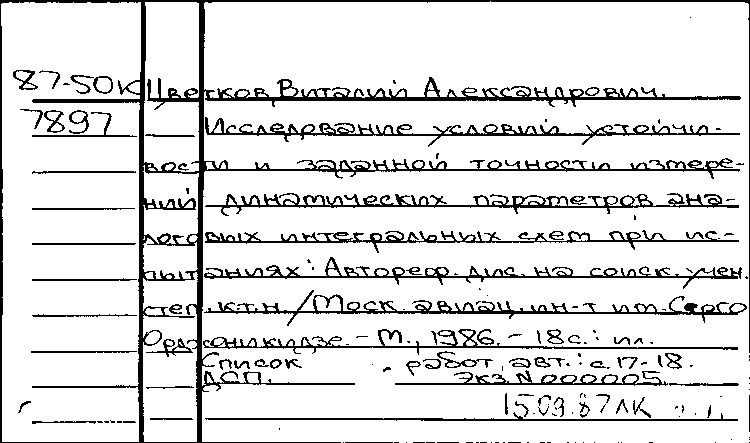 87-50К Цветков, Виталий Александрович.
7897 Исследование условий устойчи-
вости и заданной точности измере-
ний динамических параметров ана-
логовых интегральных схем при ис-
пытаниях: Автореф. дис. на соиск. учен.
степ. к.т.н. / Моск. авиац. ин-т им. Серго
Орджоникидзе. - М., 1986. - 18 с.: ил.
Список работ авт.: с. 17-18.
ДСП. Экз. N 000005
15.09.87 ЛК